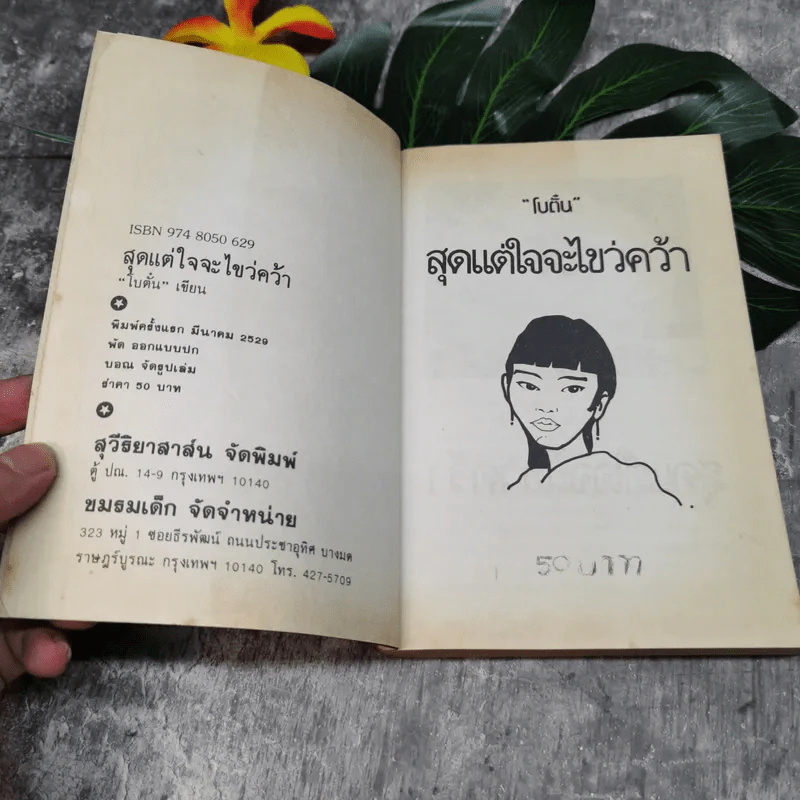 ISBN 974 8050 629
สุดแต่ใจจะไขว่คว้า
"โบตั๋น" เขียน
พิมพ์ครั้งแรก มีนาคม 2529
พัด ออกแบบปก
บอณ จัดรูปเล่ม
ราคา 50 บาท
สุวีริยาสาส์น จัดพิมพ์
ตู้ ปณ. 14-9 กรุงเทพฯ 10140
ชมรมเด็ก จัดจำหน่าย
323 หมู่ 1 ซอยธีรพัฒน์ ถนนประชาอุทิศ บางมด
ราษฎร์บูรณะ กรุงเทพฯ 10140 โทร. 427-5709
"โบตั๋น"
สุดแต่ใจจะไขว่คว้า
50 บาท